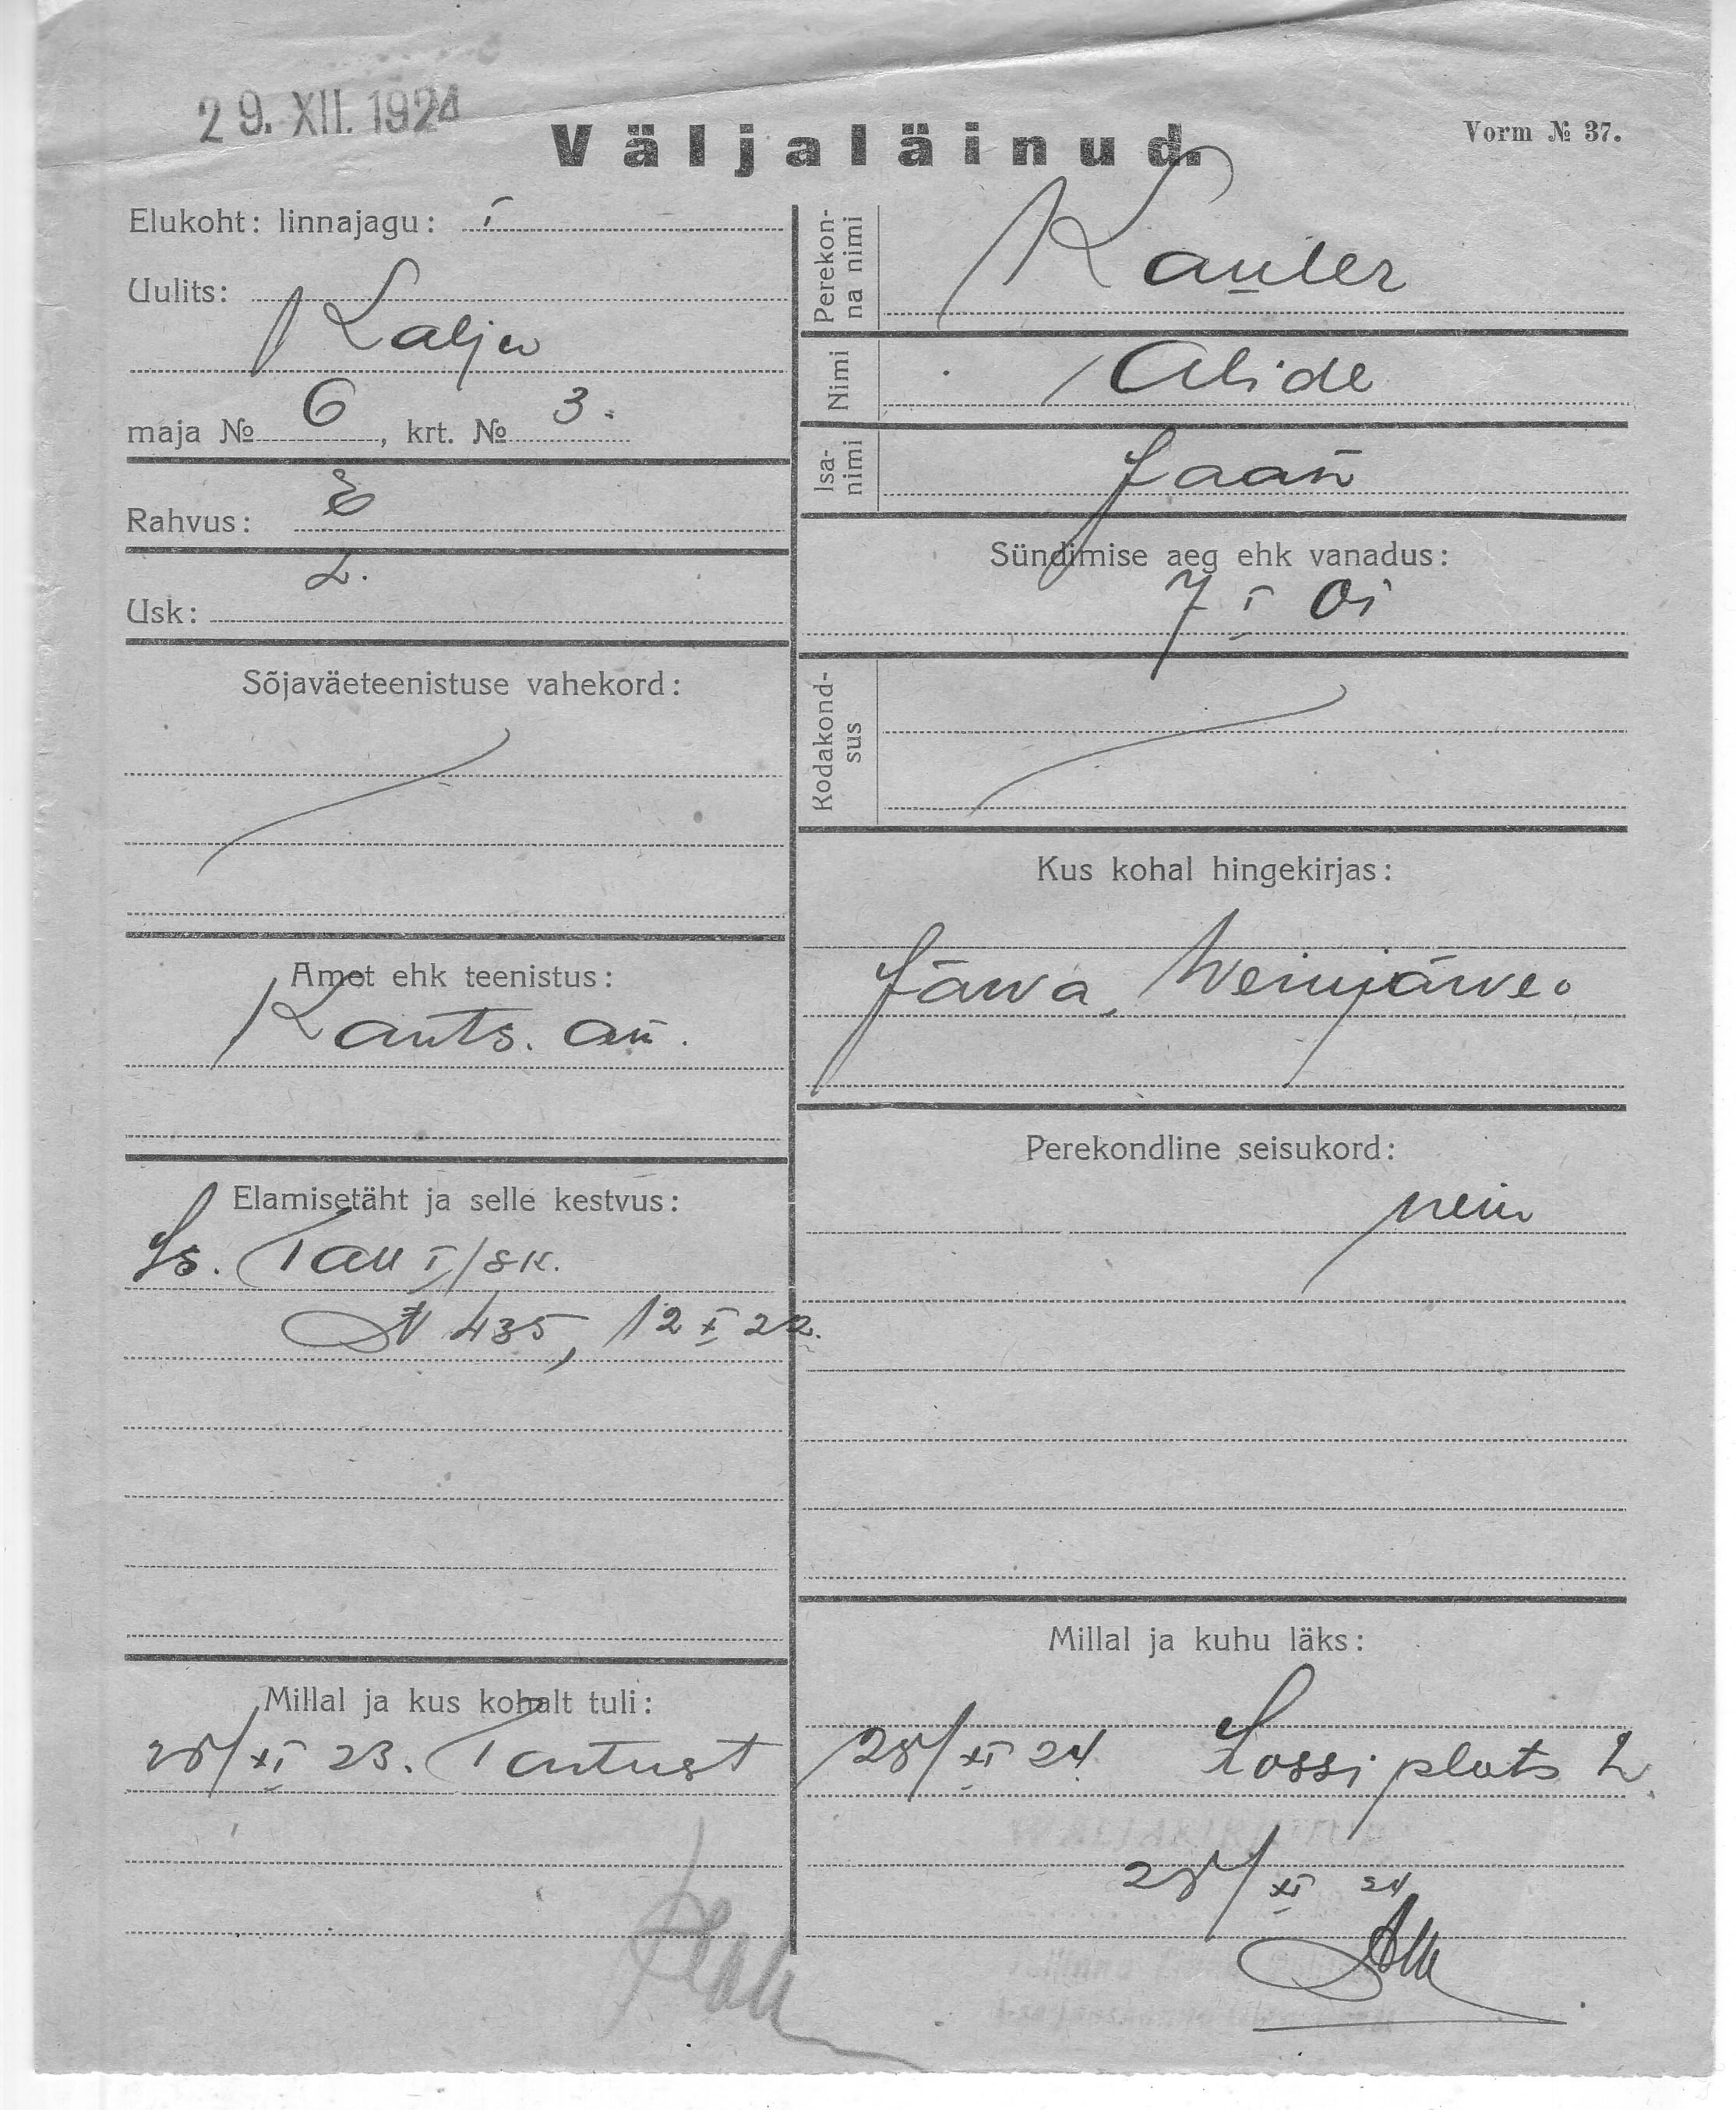 29. XII. 1924
Väljaläinud.
Vorm № 37.
Elukoht: linnajagu: I
Uulits:
Kalju
maja № 6, krt. № 3.
Rahvus: E
Usk: L.
Sõjaväeteenistuse vahekord:
Amet ehk teenistus:
Kants. am.
Elamisetäht ja selle kestvus:
Is. Tall I/sk.
№ 435, 12 X 22.
Millal ja kus kohalt tuli:
28/XI 23. Tartust
Perekonna nimi
Kauler
Nimi
Alide
Isanimi
Jaan
Sündimise aeg ehk vanadus:
7 I 01
Kodakondsus
Kus kohal hingekirjas:
Järva, Weinjärve.
Perekondline seisukord:
neiu
Millal ja kuhu läks:
28/XI 24 Lossi plats 2.
28/XI 24